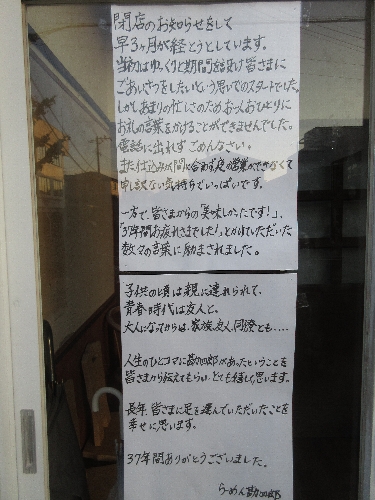 閉店のお知らせをして
早3ヶ月が経とうとしています。
当初はゆっくりと期間を設け皆さまに
ごあいさつをしたいという思いでのスタートでした。
しかしあまりの忙しさのためお一人おひとりに
お礼の言葉をかけることができませんでした。
電話に出れずごめんなさい。
また仕込みが間に合わず夜の営業ができなくて
申し訳ない気持ちでいっぱいです。
一方で、皆さまからの「美味しかったです!」、
「37年間お疲れさまでした!」とかけていただいた
数々の言葉に励まされました。
子供の頃は親に連れられて、
青春時代は友人と。
大人になってからは、家族、友人、同僚とも....
人生のひとコマに勘四郎があったということを
皆さまから伝えてもらい、とても嬉しく思います。
長年、皆さまに足を運んでいただいたことを
幸せに思います。
37年間ありがとうございました。
らーめん勘四郎